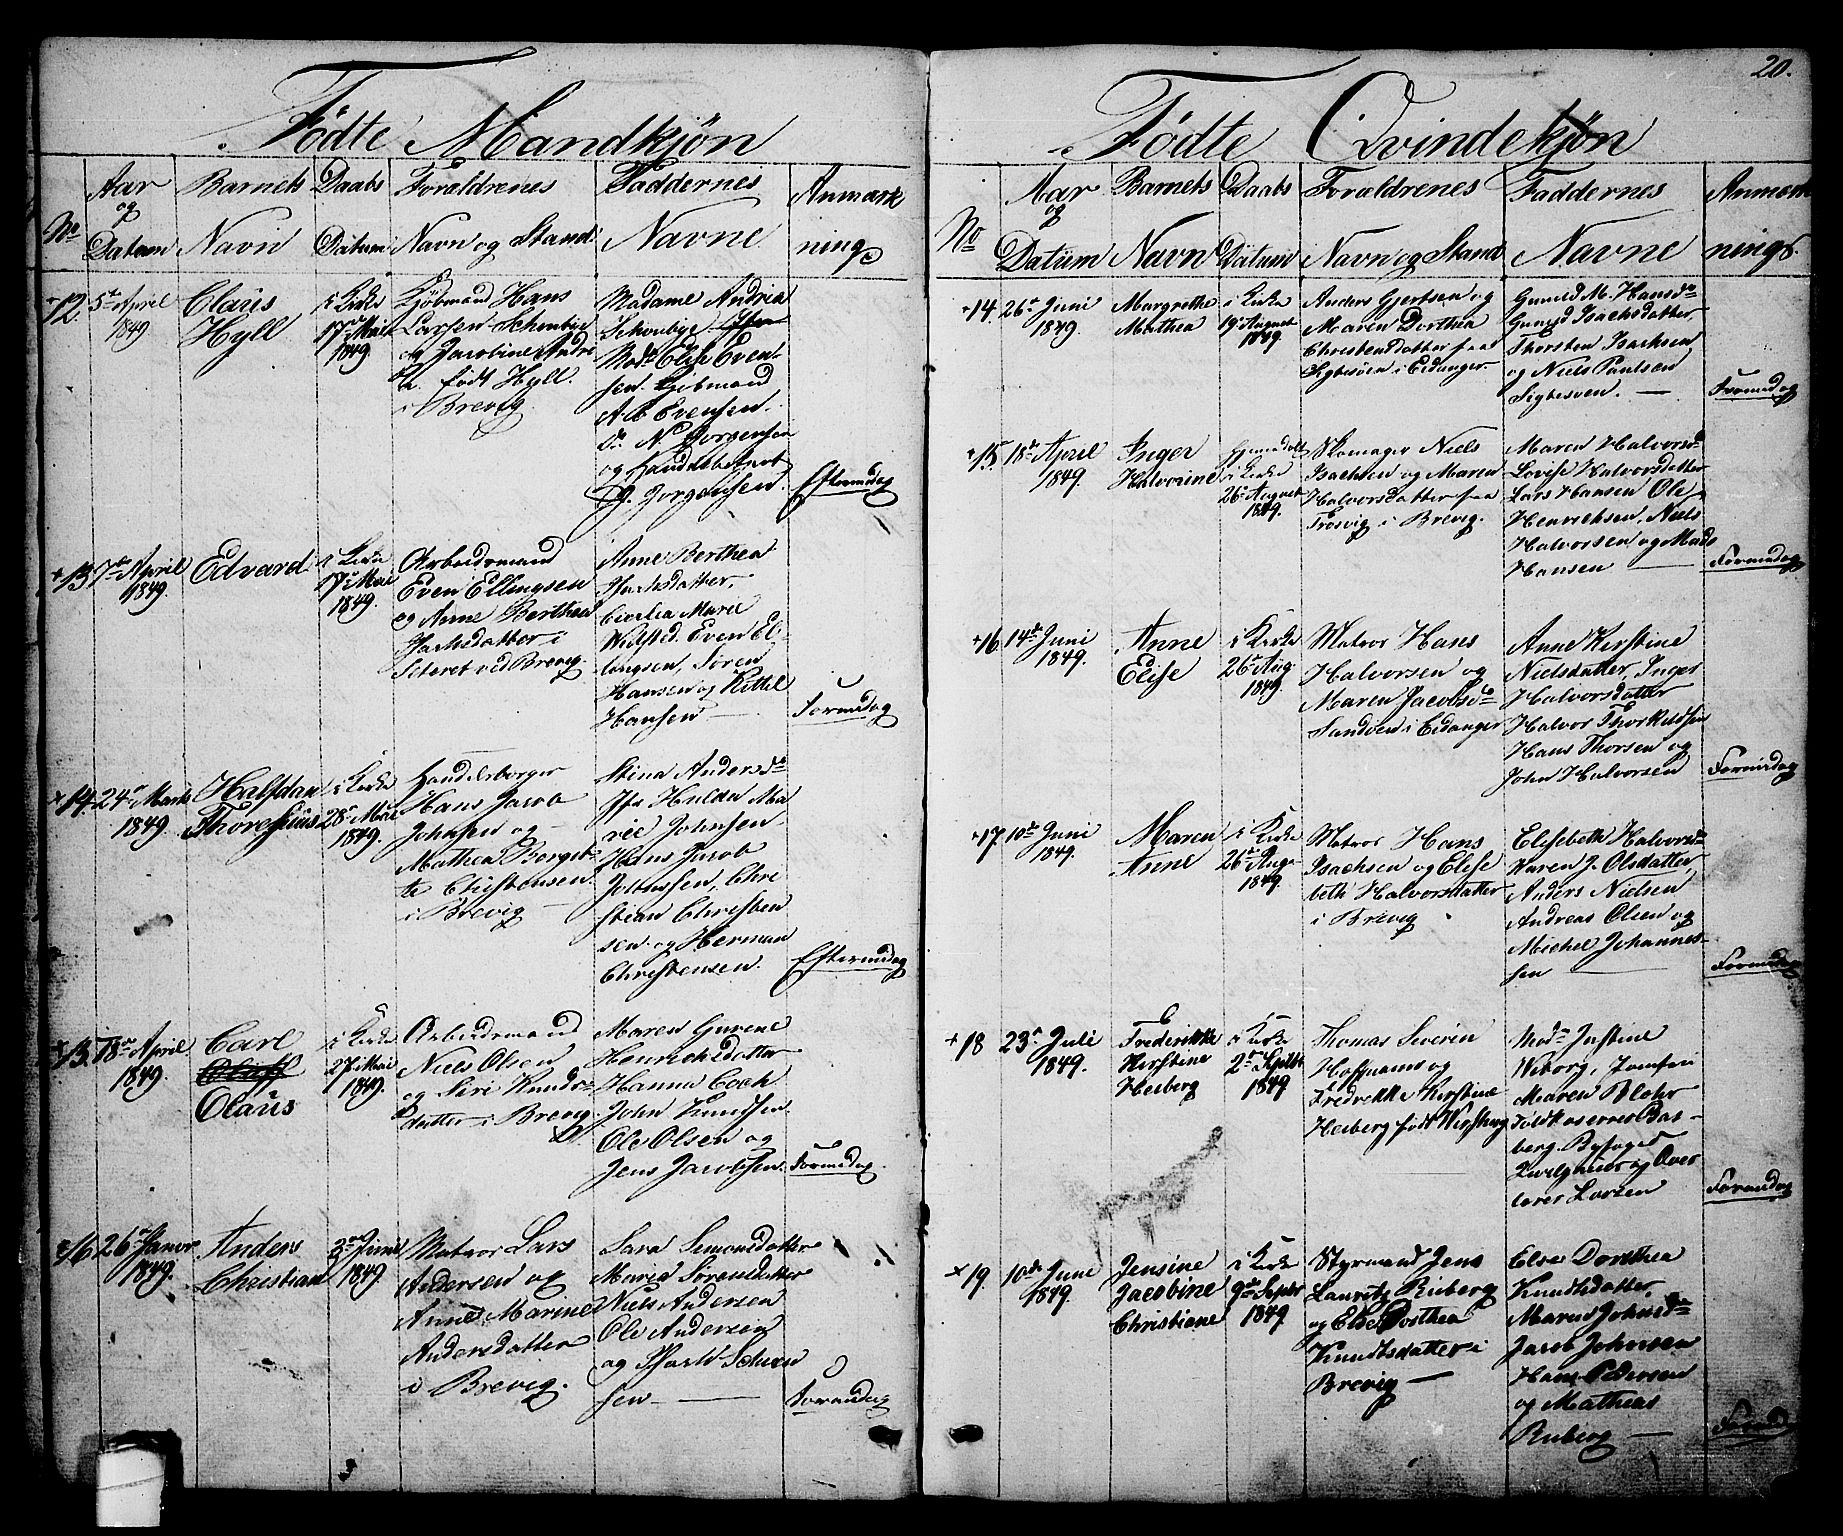 20.
Födte Mandkjön
No
Aar og Datum
Barnets Navn
Daabs Datum
Foraldrenes Navn og Stand
Faddernes Navne
Anmærk ning
12. 5te April 1849
Claus
Hyll
i Kirke
17de Mai
1849
Kjöbmand Hans
Larsen Schonbye
og Jacobine Andrea
född Hyll.
i Brevig.
Madame Andrea
Schonbye
Mad. Elise Even-
sen. Kjöbmand
A B Evensen.
do. N. Jorgensen
og Handelsbetient
Jorgensen.
Eftermidag
+13 7de April 1849.
Edvard
i Kirke
17de Mai
1849.
Arbeidsmand
Even Ellingsen
og Anne Berthea
Isaksdatter i
ved Brevig.
Anne Berthea
Isaksdatter,
Cicelia Marie
Even El-
lingsen, Sören
Hansen og Kittel
Hansen —
Formidag
×14. 24de Marts 1849.
Halfdan
Thoresius
i Kirke
28de Mai
1849.
Handelsborger
Hans Jacob
Johnsen og
Mathea Borget-
te Christensen.
i Brevig —
Stina Andersdr
Jfr Hulda Ma
rie Johnsen,
Hans Jacob
Johnssen, Chri
stian Christen
sen og Herman
Christensen.
Eftermidag
×15. 18de April 1849.
Carl
Claus
i Kirke
27de Mai
1849.
Arbeidsmand
Niels Olsen
og Siri Knuds-
datter i Brevig.
Maren Gurene
Henrichsdatter
Hanna Coch
John Knudsen
Ole Olsen og
Jens Jacobsen.
Formidag.
×16. 26de Januar 1849.
Anders
Christian
3de Junii
1849.
Matros Lars
Andersen og
Anne Marine
Andersdatter
i Brevig.
Sara Simonsdatter
Maria Sörensdatter
Niels Andersen
Ole Andersen
og
sen —
Formidag
Födte Qvindekjön
No
Aar og Datum
Barnets Navn
Daabs Datum
Foraldrenes Navn og Stand
Faddernes Navne
Anmærk nings.
+14. 26de Juni 1849.
Margrethe
Mathea
i Kirke
19de August
1849.
Anders Gjertsen og
Maren Dorthea
Christensdatter paa
i Eidanger.
Gunild M. Hansdr
Gunild Isachsdatter,
Thorsten Isachsen
og Niels Paulsen
—
Formidag
+15. 18de April 1849.
Inger
Halvorine
Hjemmedöbt
i Kirke
26de August
1849.
Skomager Niels
Isachsen og Maren
Halvorsdatter paa
Trosvig i Brevig.
Maren Halvorsdr
Lovise Halvorsdatter
Lars Hansen Ole
Henrichsen, Niels
Halvorsen og Mads
Hansen —
Formidag
+16. 14de Juni 1849.
Anne
Elise
i Kirke
26de Aug.
1849.
Matros Hans
Halvorsen og
Maren Jacobsdr
Sandven i Eidanger
Anne Kirstine
Nielsdatter, Inger
Halvorsdatter
Halvor Thorkildsen
Hans Thorsen og
John Halvorsen
Formidag
+17. 10de Juni 1849.
Maren
Anne
i Kirke
26de Aug.
1849.
Matros Hans
Isachsen og Elise
beth Halvorsdatter
i Brevig
Elisebeth Halvorsdr
Karen J. Olsdatter,
Anders Nielsen
Andreas Olsen og
Michel Johannes-
sen —
Formidag
+18 23de Juli 1849.
Frederikke
Kirstine
Heiberg
i Kirke
2de Septbr
1849
Thomas Severin
Hoffmans og
Fredrekke Kirstine
Heiberg född
Mad. Justine
Wiborg, Jomfru
Maren Blehr
Toldkasserer Bas-
berg. Byfoged
og Over
lærer Larsen
Formidag
×19. 10de Juni 1849.
Jensine
Jacobine
Christiane
i Kirke
9de Septbr
1849
Styrmand Jens
Lauritz Ruberg
og Else Dorthea
Knudtsdatter i
Brevig —
Else Dorthea
Knudtsdatter,
Maren Johnsdr
Jacob Johnsen
Hans Pedersen
og Mathias
Ruberg —
Formid